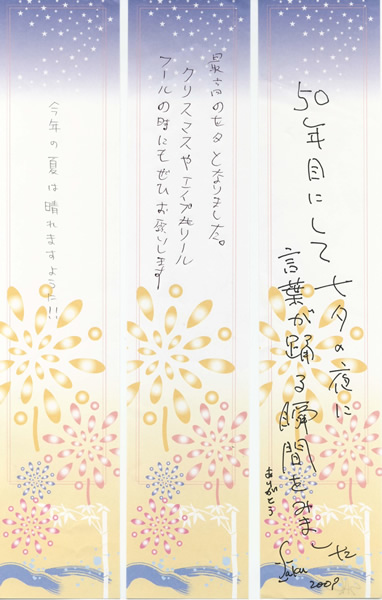 50年目にして七夕の夜に
言葉が踊る瞬間をみました
ありがとう
2009
最高の七夕となりました。
クリスマスやエイプルリール
フールの時にもぜひお願いします
今年の夏は晴れますように!!